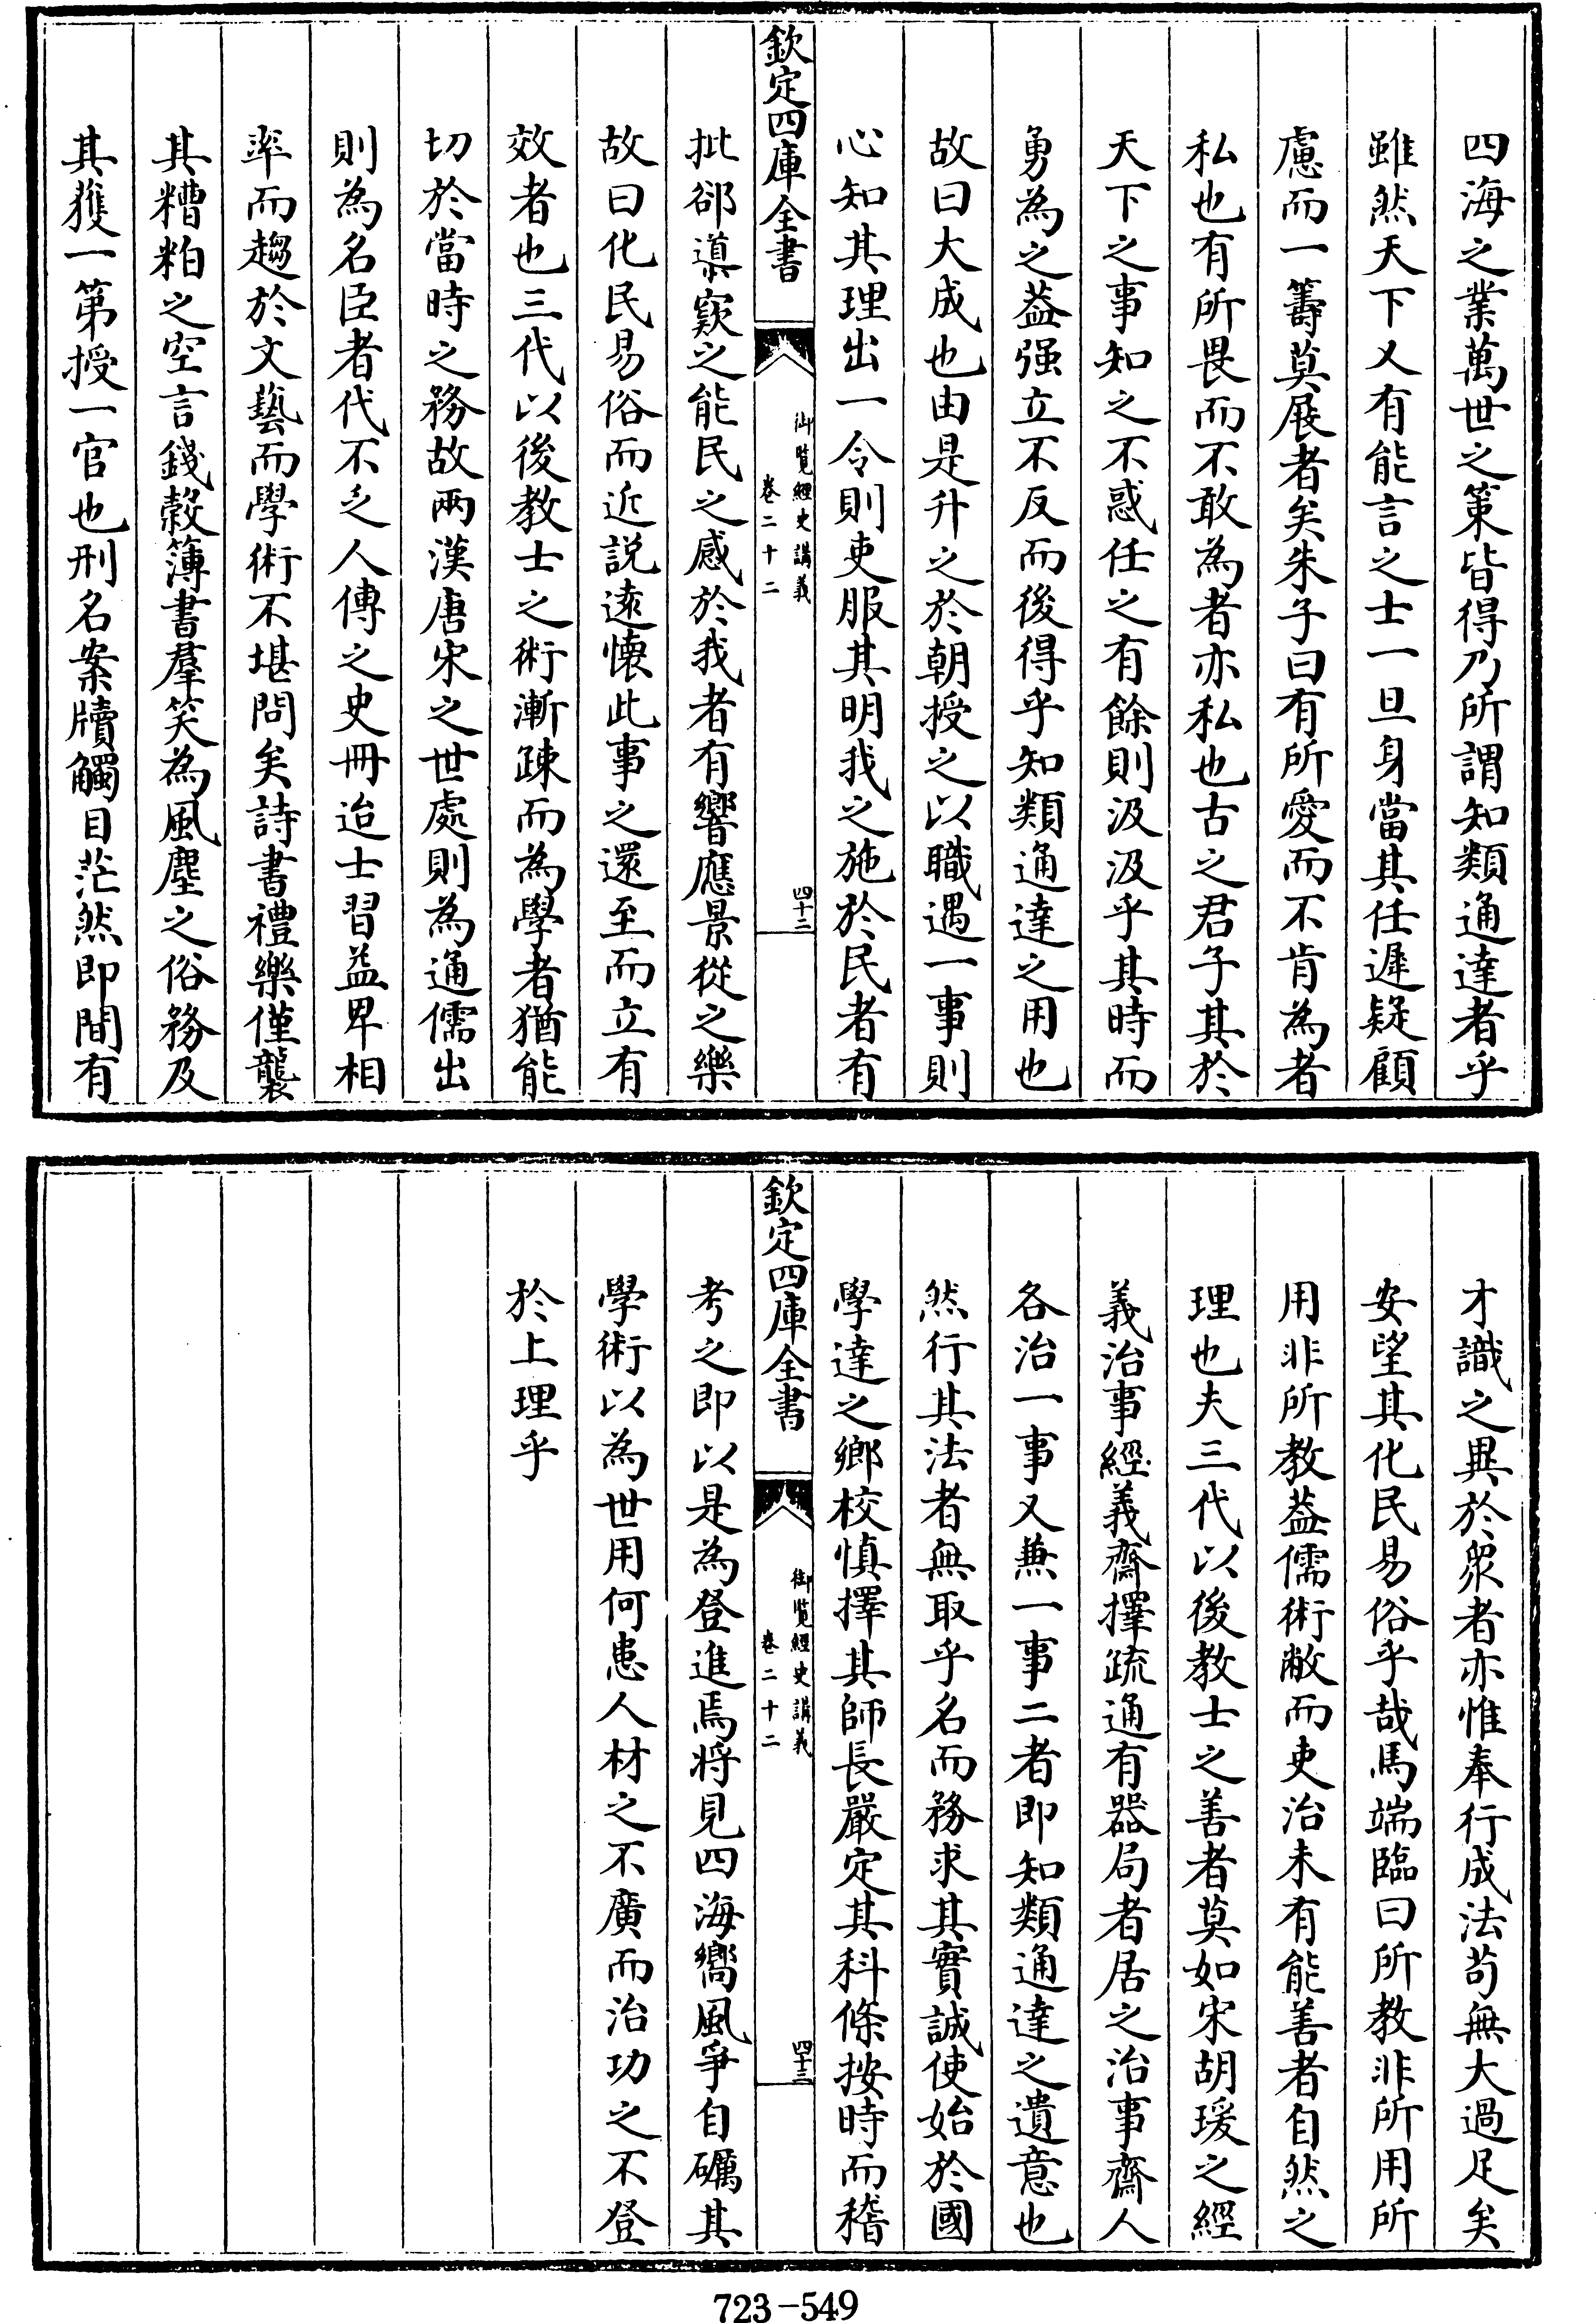 四海之業萬世之策皆得乃所謂知類通達者乎
雖然天下又有能言之士一旦身當其任遲疑顧
慮而一籌莫展者矣朱子曰有所愛而不肯為者
私也有所畏而不敢為者亦私也古之君子其於
天下之事知之不惑任之有餘則汲汲乎其時而
勇為之葢强立不反而後得乎知類通達之用也
故曰大成也由是升之於朝授之以職遇一事則
心知其理出一令則吏服其明我之施於民者有
欽定四庫全書
御覽經史講義
卷二十二
四十二
批郤導窾之能民之感於我者有響應景從之樂
故曰化民易俗而近説逺懐此事之還至而立有
效者也三代以後教士之術漸疎而為學者猶能
切於當時之務故兩漢唐宋之世處則為通儒出
則為名臣者代不乏人傳之史冊迨士習益卑相
率而趨於文藝而學術不堪問矣詩書禮樂僅襲
其糟粕之空言錢穀簿書羣笑為風塵之俗務及
其獲一第授一官也刑名案牘觸目茫然即間有
才識之異於衆者亦惟奉行成法苟無大過足矣
安望其化民易俗乎哉馬端臨曰所教非所用所
用非所教葢儒術敝而吏治未有能善者自然之
理也夫三代以後教士之善者莫如宋胡瑗之經
義治事經義齋擇疏通有器局者居之治事齋人
各治一事又兼一事二者即知類通達之遺意也
然行其法者無取乎名而務求其實誠使始於國
學達之鄉校慎擇其師長嚴定其科條按時而稽
欽定四庫全書
御覽經史講義
卷二十二
四十三
考之即以是為登進焉將見四海嚮風爭自礪其
學術以為世用何患人材之不廣而治功之不登
於上理乎
723-549